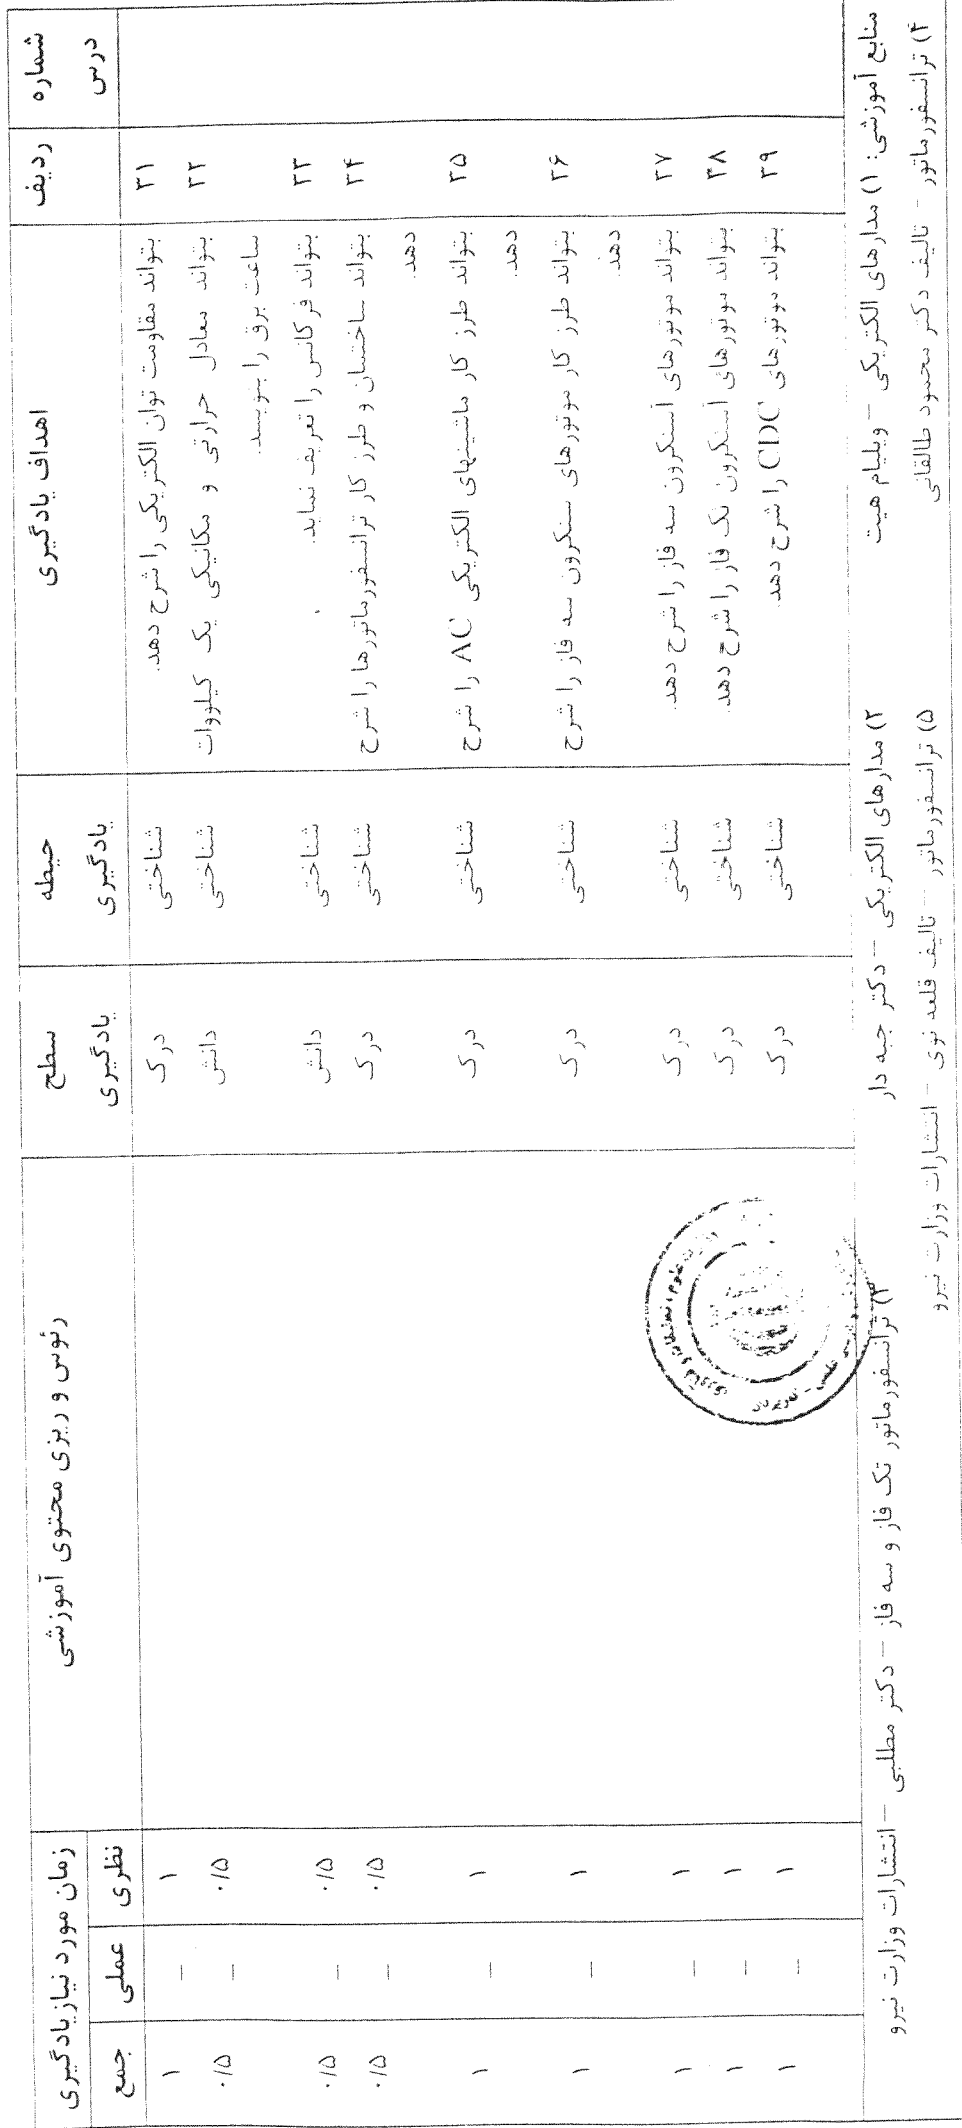 شماره درس | ردیف | اهداف یادگیری | حیطه یادگیری | سطح یادگیری | رئوس و ریزی محتوی آموزشی | زمان مورد نیاز یادگیری
نظری | عملی | جمع
۳۱ | بتواند مقاومت توان الکتریکی را شرح دهد. | شناختی | درک | ۱ | – | ۱
۳۲ | بتواند معادل حرارتی و مکانیکی یک کیلووات | شناختی | دانش | ۰/۵ | – | ۰/۵
ساعت برق را بنویسد.
۳۳ | بتواند فرکانس را تعریف نماید. | شناختی | دانش | ۰/۵ | – | ۰/۵
۳۴ | بتواند ساختمان و طرز کار ترانسفورماتورها را شرح | شناختی | درک | ۰/۵ | – | ۰/۵
دهد.
۳۵ | بتواند طرز کار ماشینهای الکتریکی AC را شرح | شناختی | درک | ۱ | – | ۱
دهد.
۳۶ | بتواند طرز کار موتورهای سنکرون سه فاز را شرح | شناختی | درک | ۱ | – | ۱
دهد.
۳۷ | بتواند موتورهای آسنکرون سه فاز را شرح دهد. | شناختی | درک | ۱ | – | ۱
۳۸ | بتواند موتورهای آسنکرون تک فاز را شرح دهد. | شناختی | درک | ۱ | – | ۱
۳۹ | بتواند موتورهای CDC را شرح دهد. | شناختی | درک | ۱ | – | ۱
منابع آموزشی: ۱) مدارهای الکتریکی – ویلیام هیت ۲) مدارهای الکتریکی – دکتر جبه دار ۳) ترانسفورماتور تک فاز و سه فاز – دکتر مطلبی – انتشارات وزارت نیرو
۴) ترانسفورماتور – تالیف دکتر محمود طالقانی ۵) ترانسفورماتور – تالیف قلعه نوی – انتشارات وزارت نیرو